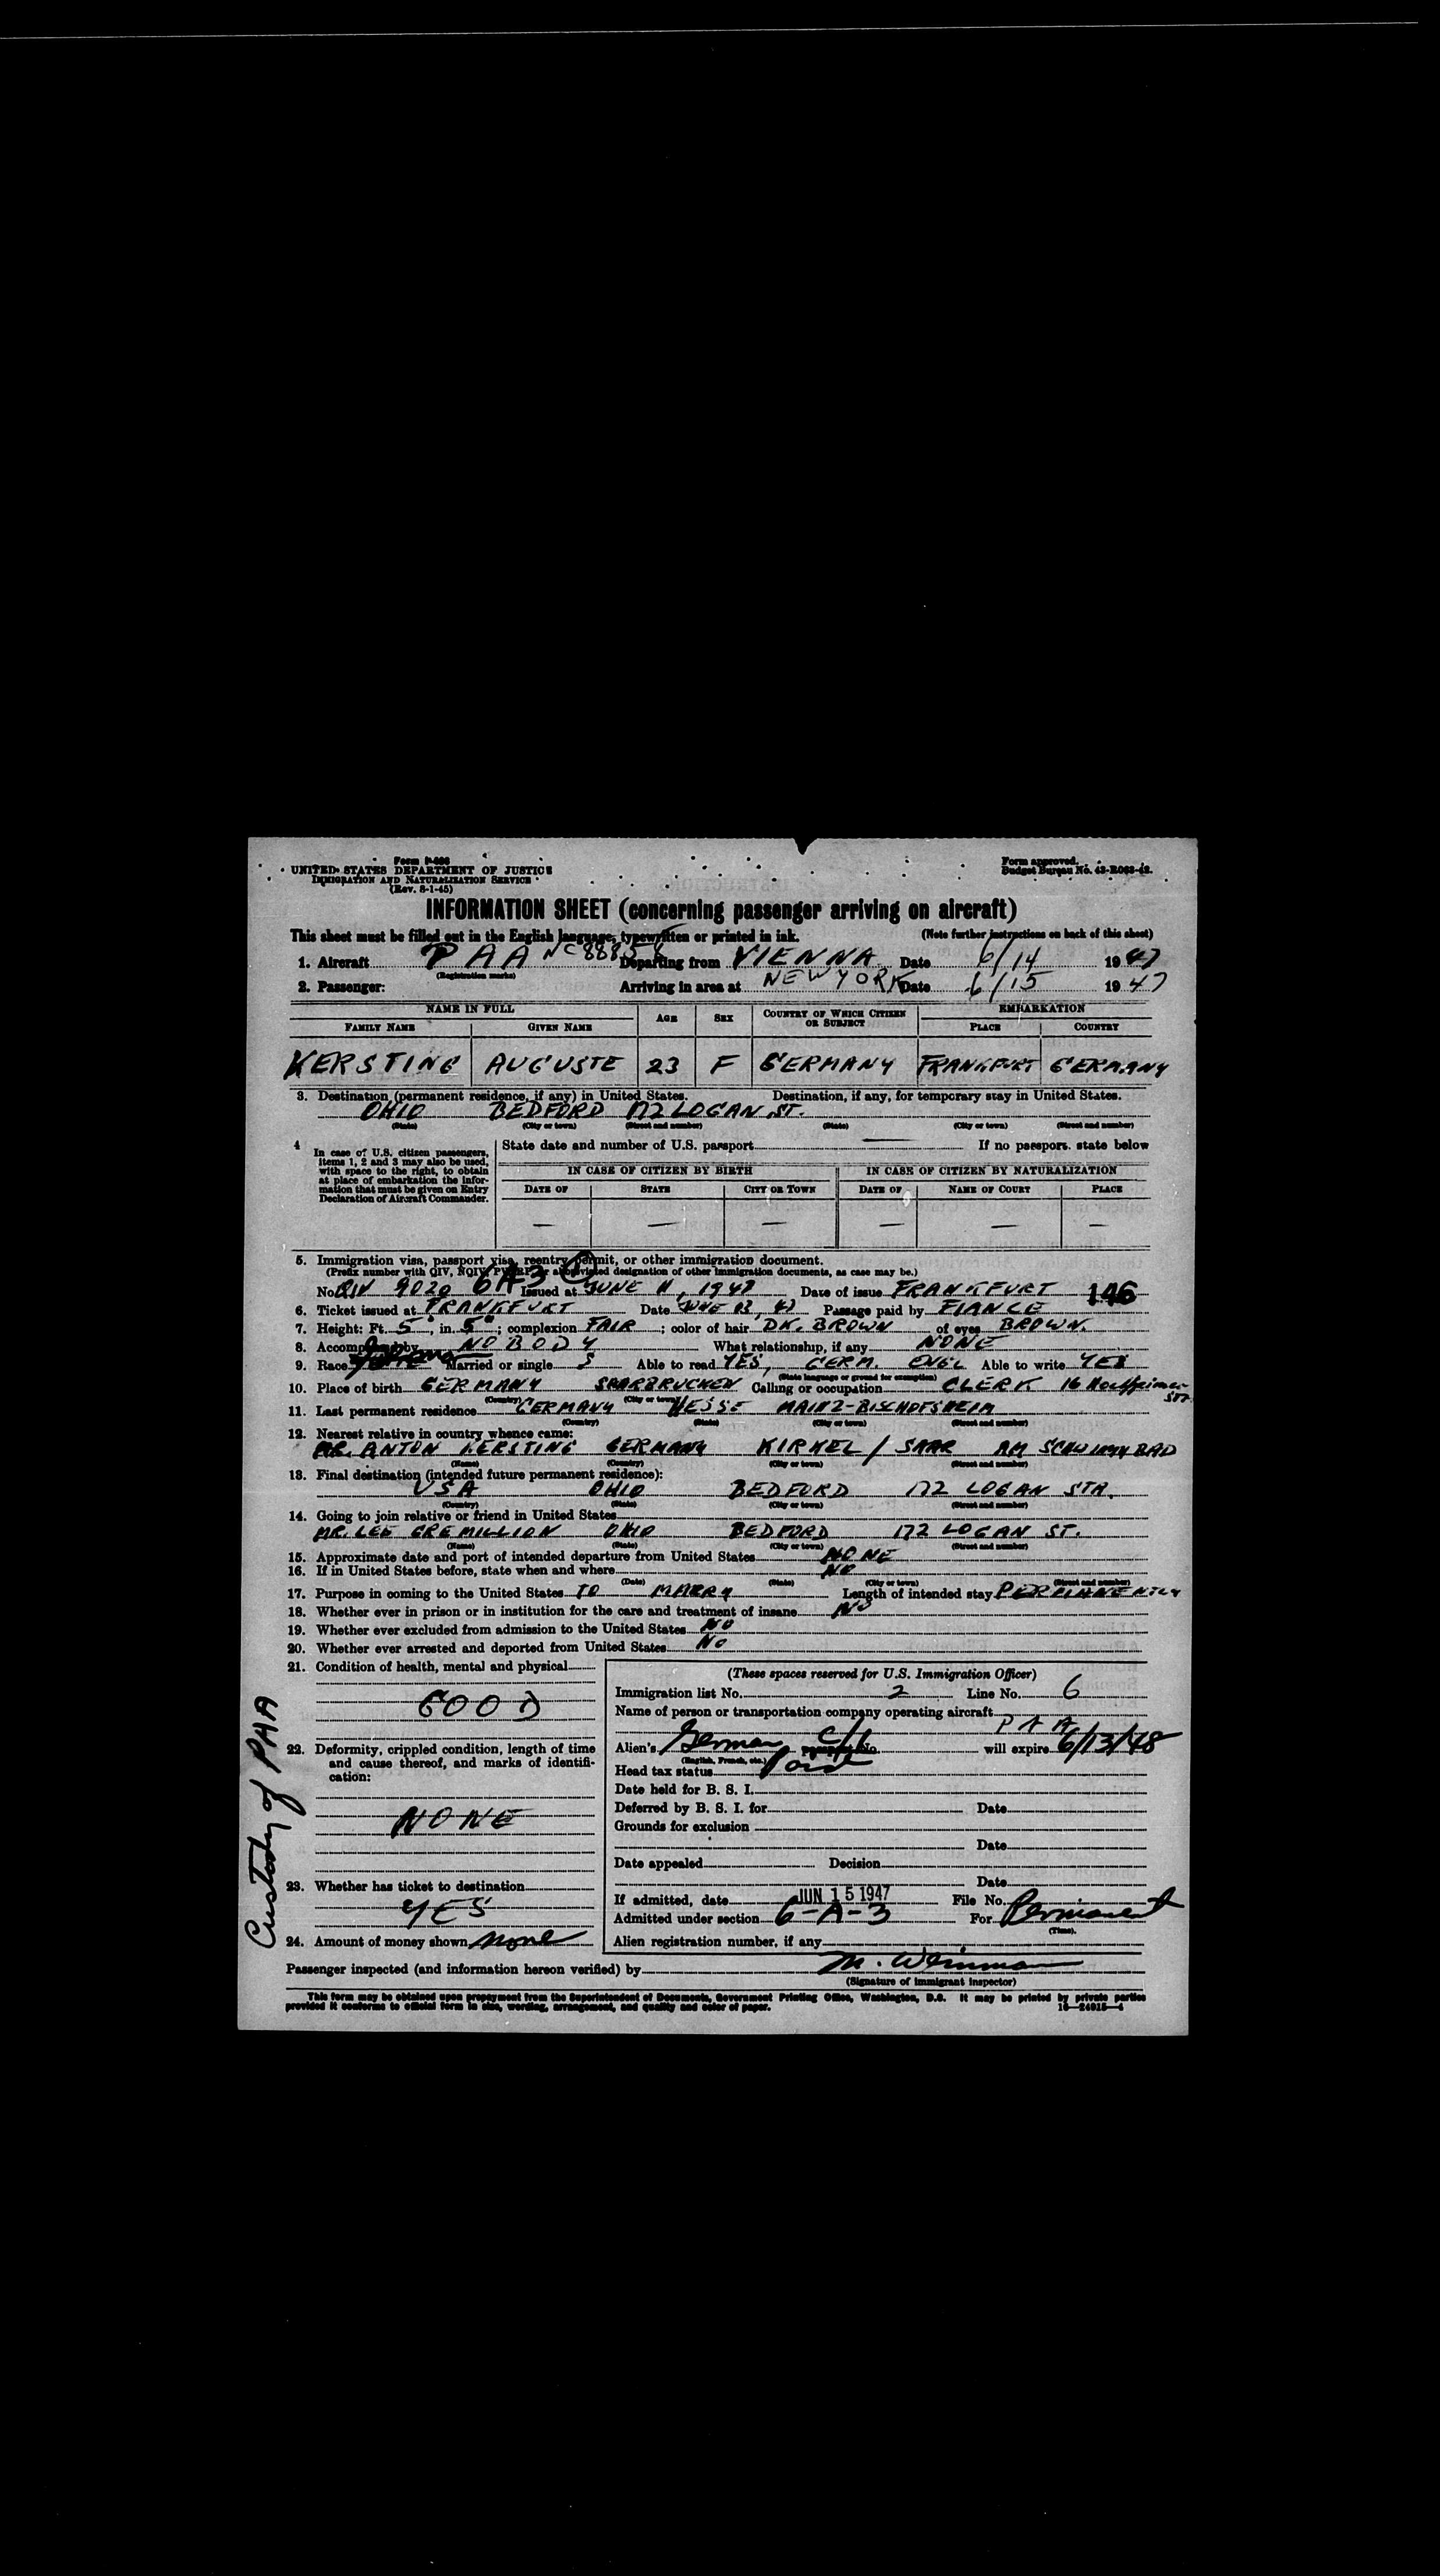 Form I-466
UNITED STATES DEPARTMENT OF JUSTICE
IMMIGRATION AND NATURALIZATION SERVICE
(Rev. 8-1-45)
Form approved.
Budget Bureau No. 43-R063-42.
INFORMATION SHEET (concerning passenger arriving on aircraft)
This sheet must be filled out in the English language, typewritten or printed in ink. (Note further instructions on back of this sheet)
1. Aircraft PAA NC 88858 Departing from VIENNA Date 6/14 1947
(Registration marks)
2. Passenger: Arriving in area at NEW YORK Date 6/15 1947
NAME IN FULL AGE SEX COUNTRY OF WHICH CITIZEN OR SUBJECT EMBARKATION
FAMILY NAME GIVEN NAME PLACE COUNTRY
KERSTING AUGUSTE 23 F GERMANY FRANKFURT GERMANY
3. Destination (permanent residence, if any) in United States. Destination, if any, for temporary stay in United States.
OHIO BEDFORD 172 LOGAN ST.
(State) (City or town) (Street and number) (State) (City or town) (Street and number)
4 In case of U.S. citizen passengers, items 1, 2 and 3 may also be used, with space to the right, to obtain at place of embarkation the information that must be given on Entry Declaration of Aircraft Commander.
State date and number of U.S. passport — If no passport, state below
IN CASE OF CITIZEN BY BIRTH IN CASE OF CITIZEN BY NATURALIZATION
DATE OF STATE CITY OR TOWN DATE OF NAME OF COURT PLACE
— — — — — —
5. Immigration visa, passport visa, reentry permit, or other immigration document.
(Prefix number with QIV, NQIV, PV, RP, or abbreviated designation of other immigration documents, as case may be.)
No. QIV 9020 6A3 Issued at JUNE 11, 1947 Date of issue FRANKFURT 146
6. Ticket issued at FRANKFURT Date JUNE 13, 47 Passage paid by FIANCE
7. Height: Ft. 5, in. 5"; complexion FAIR; color of hair DK. BROWN of eyes BROWN.
8. Accompanied by NOBODY What relationship, if any NONE
9. Race Married or single S Able to read YES, GERM. ENGL Able to write YES
(State language or ground for exemption)
10. Place of birth GERMANY SAARBRUCKEN Calling or occupation CLERK 16
(Country) (City or town)
11. Last permanent residence GERMANY HESSE MAINZ-BISCHOFSHEIM STR
(Country) (State) (City or town) (Street and number)
12. Nearest relative in country whence came:
MR. ANTON KERSTING GERMANY KIRKEL / SAAR AM SCHWIMMBAD
(Name) (Country) (City or town) (Street and number)
13. Final destination (intended future permanent residence):
USA OHIO BEDFORD 172 LOGAN STR.
(Country) (State) (City or town) (Street and number)
14. Going to join relative or friend in United States
MR. LEE GREMILLION OHIO BEDFORD 172 LOGAN ST.
(Name) (State) (City or town) (Street and number)
15. Approximate date and port of intended departure from United States NONE
16. If in United States before, state when and where NO
(Date) (State) (City or town) (Street and number)
17. Purpose in coming to the United States TO MARRY Length of intended stay PERMANENTLY
18. Whether ever in prison or in institution for the care and treatment of insane NO
19. Whether ever excluded from admission to the United States NO
20. Whether ever arrested and deported from United States NO
21. Condition of health, mental and physical
GOOD
22. Deformity, crippled condition, length of time and cause thereof, and marks of identification:
NONE
23. Whether has ticket to destination
YES
24. Amount of money shown none
Custody of PAA
(These spaces reserved for U.S. Immigration Officer)
Immigration list No. 2 Line No. 6
Name of person or transportation company operating aircraft
PAA
Alien's German C/I passport No. will expire 6/13/48
(English, French, etc.)
Head tax status Paid
Date held for B. S. I.
Deferred by B. S. I. for Date
Grounds for exclusion
Date
Date appealed Decision
Date
If admitted, date JUN 15 1947 File No.
Admitted under section 6-A-3 For Permanent
(Time)
Alien registration number, if any
Passenger inspected (and information hereon verified) by M. Weinman
(Signature of immigrant inspector)
This form may be obtained upon prepayment from the Superintendent of Documents, Government Printing Office, Washington, D.C. It may be printed by private parties
provided it conforms to official form in size, wording, arrangement, and quality and color of paper. 16—24915-4